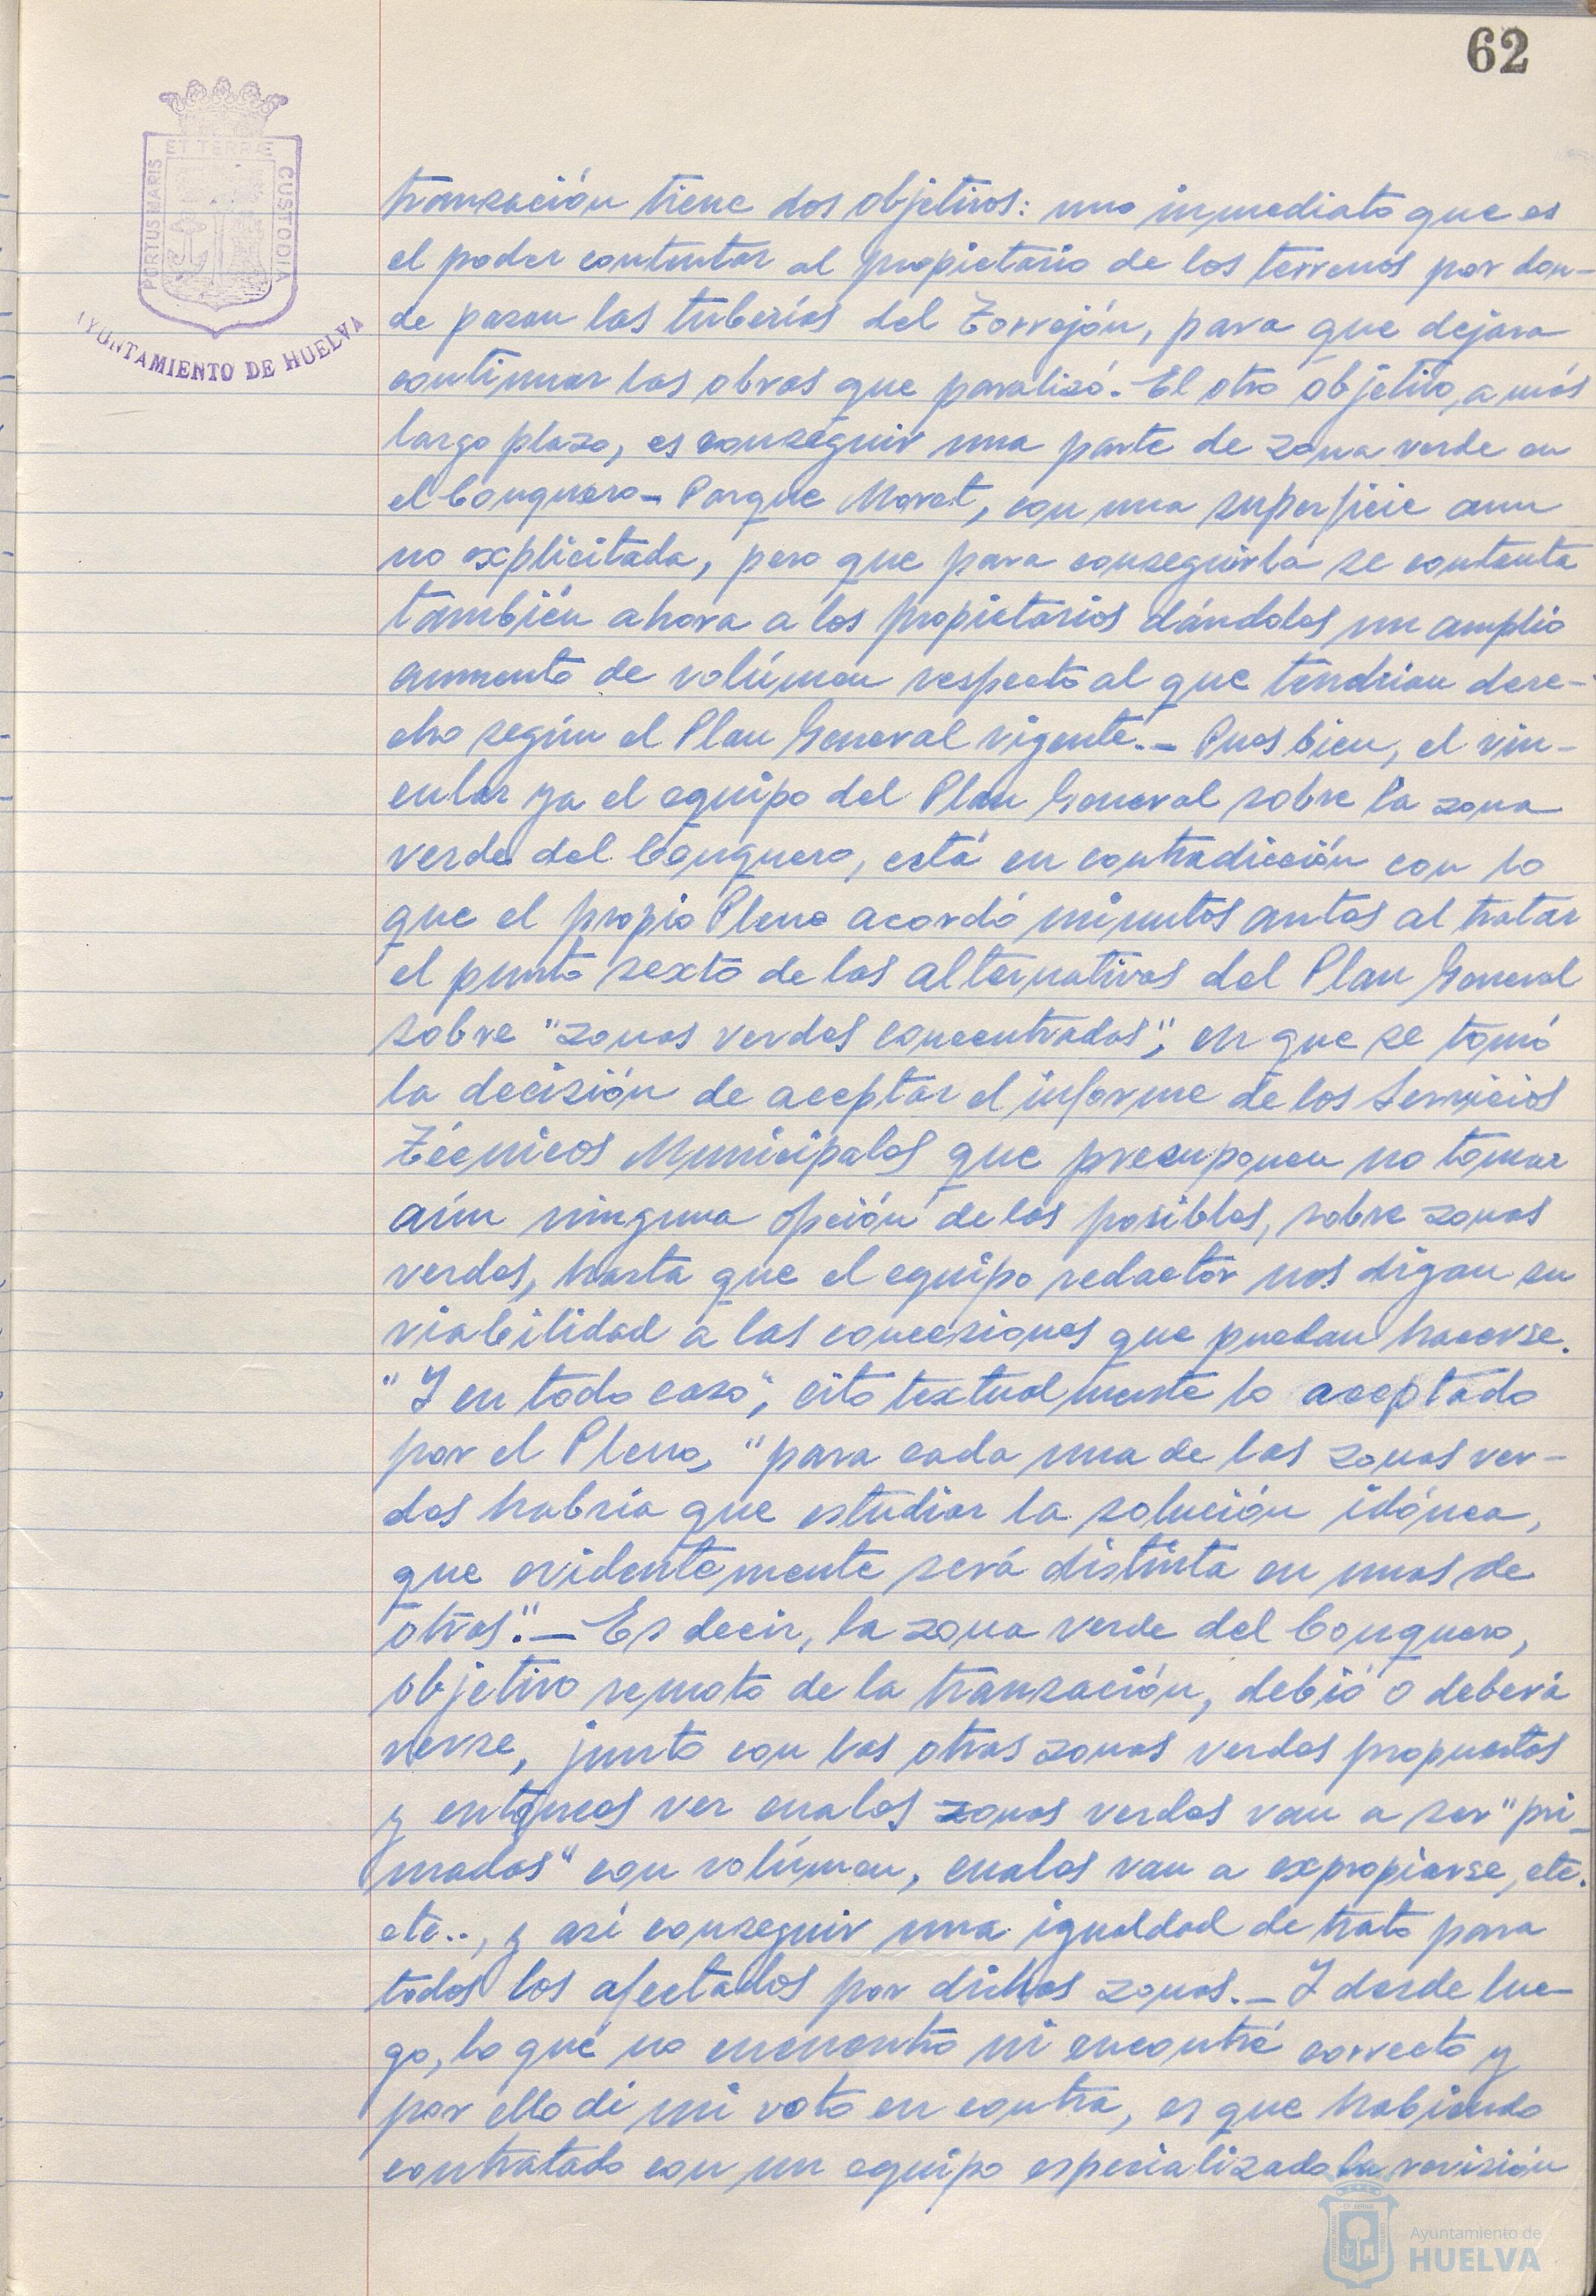 62
ET TERRÆ
PORTUS MARIS
CUSTODIA
AYUNTAMIENTO DE HUELVA
transación tiene dos objetivos: uno inmediato que es
el poder contentar al propietario de los terrenos por don-
de pasan las tuberías del Torrejón, para que dejara
continuar las obras que paralizó.- El otro objetivo, a más
largo plazo, es conseguir una parte de zona verde en
el Conquero - Parque Moret, con una superficie aun
no explicitada, pero que para conseguirla se contenta
también ahora a los propietarios dándoles un amplio
aumento de volúmen respecto al que tendrían dere-
cho según el Plan General vigente.- Pues bien, el vin-
cular ya el equipo del Plan General sobre la zona
verde del Conquero, está en contradicción con lo
que el propio Pleno acordó minutos antes al tratar
el punto sexto de las alternativas del Plan General
sobre "zonas verdes concentradas", en que se tomó
la decisión de aceptar el informe de los Servicios
Técnicos Municipales que presuponen no tomar
aún ninguna opción de las posibles, sobre zonas
verdes, hasta que el equipo redactor nos digan su
viabilidad a las concesiones que puedan hacerse.
"Y en todo caso", cito textualmente lo aceptado
por el Pleno, "para cada una de las zonas ver-
des habría que estudiar la solución idónea,
que evidentemente será distinta en unas de
otras".- Es decir, la zona verde del Conquero,
objetivo remoto de la transación, debió o deberá
verse, junto con las otras zonas verdes propuestas
y entonces ver cuales zonas verdes van a ser "pri-
madas" con volúmen, cuales van a expropiarse, etc.
etc.., y así conseguir una igualdad de trato para
todos los afectados por dichas zonas.- Y desde lue-
go, lo qué no encuentro ni encontré correcto y
por ello dí mi voto en contra, es que habiendo
contratado con un equipo especializado la revisión
Ayuntamiento de
HUELVA